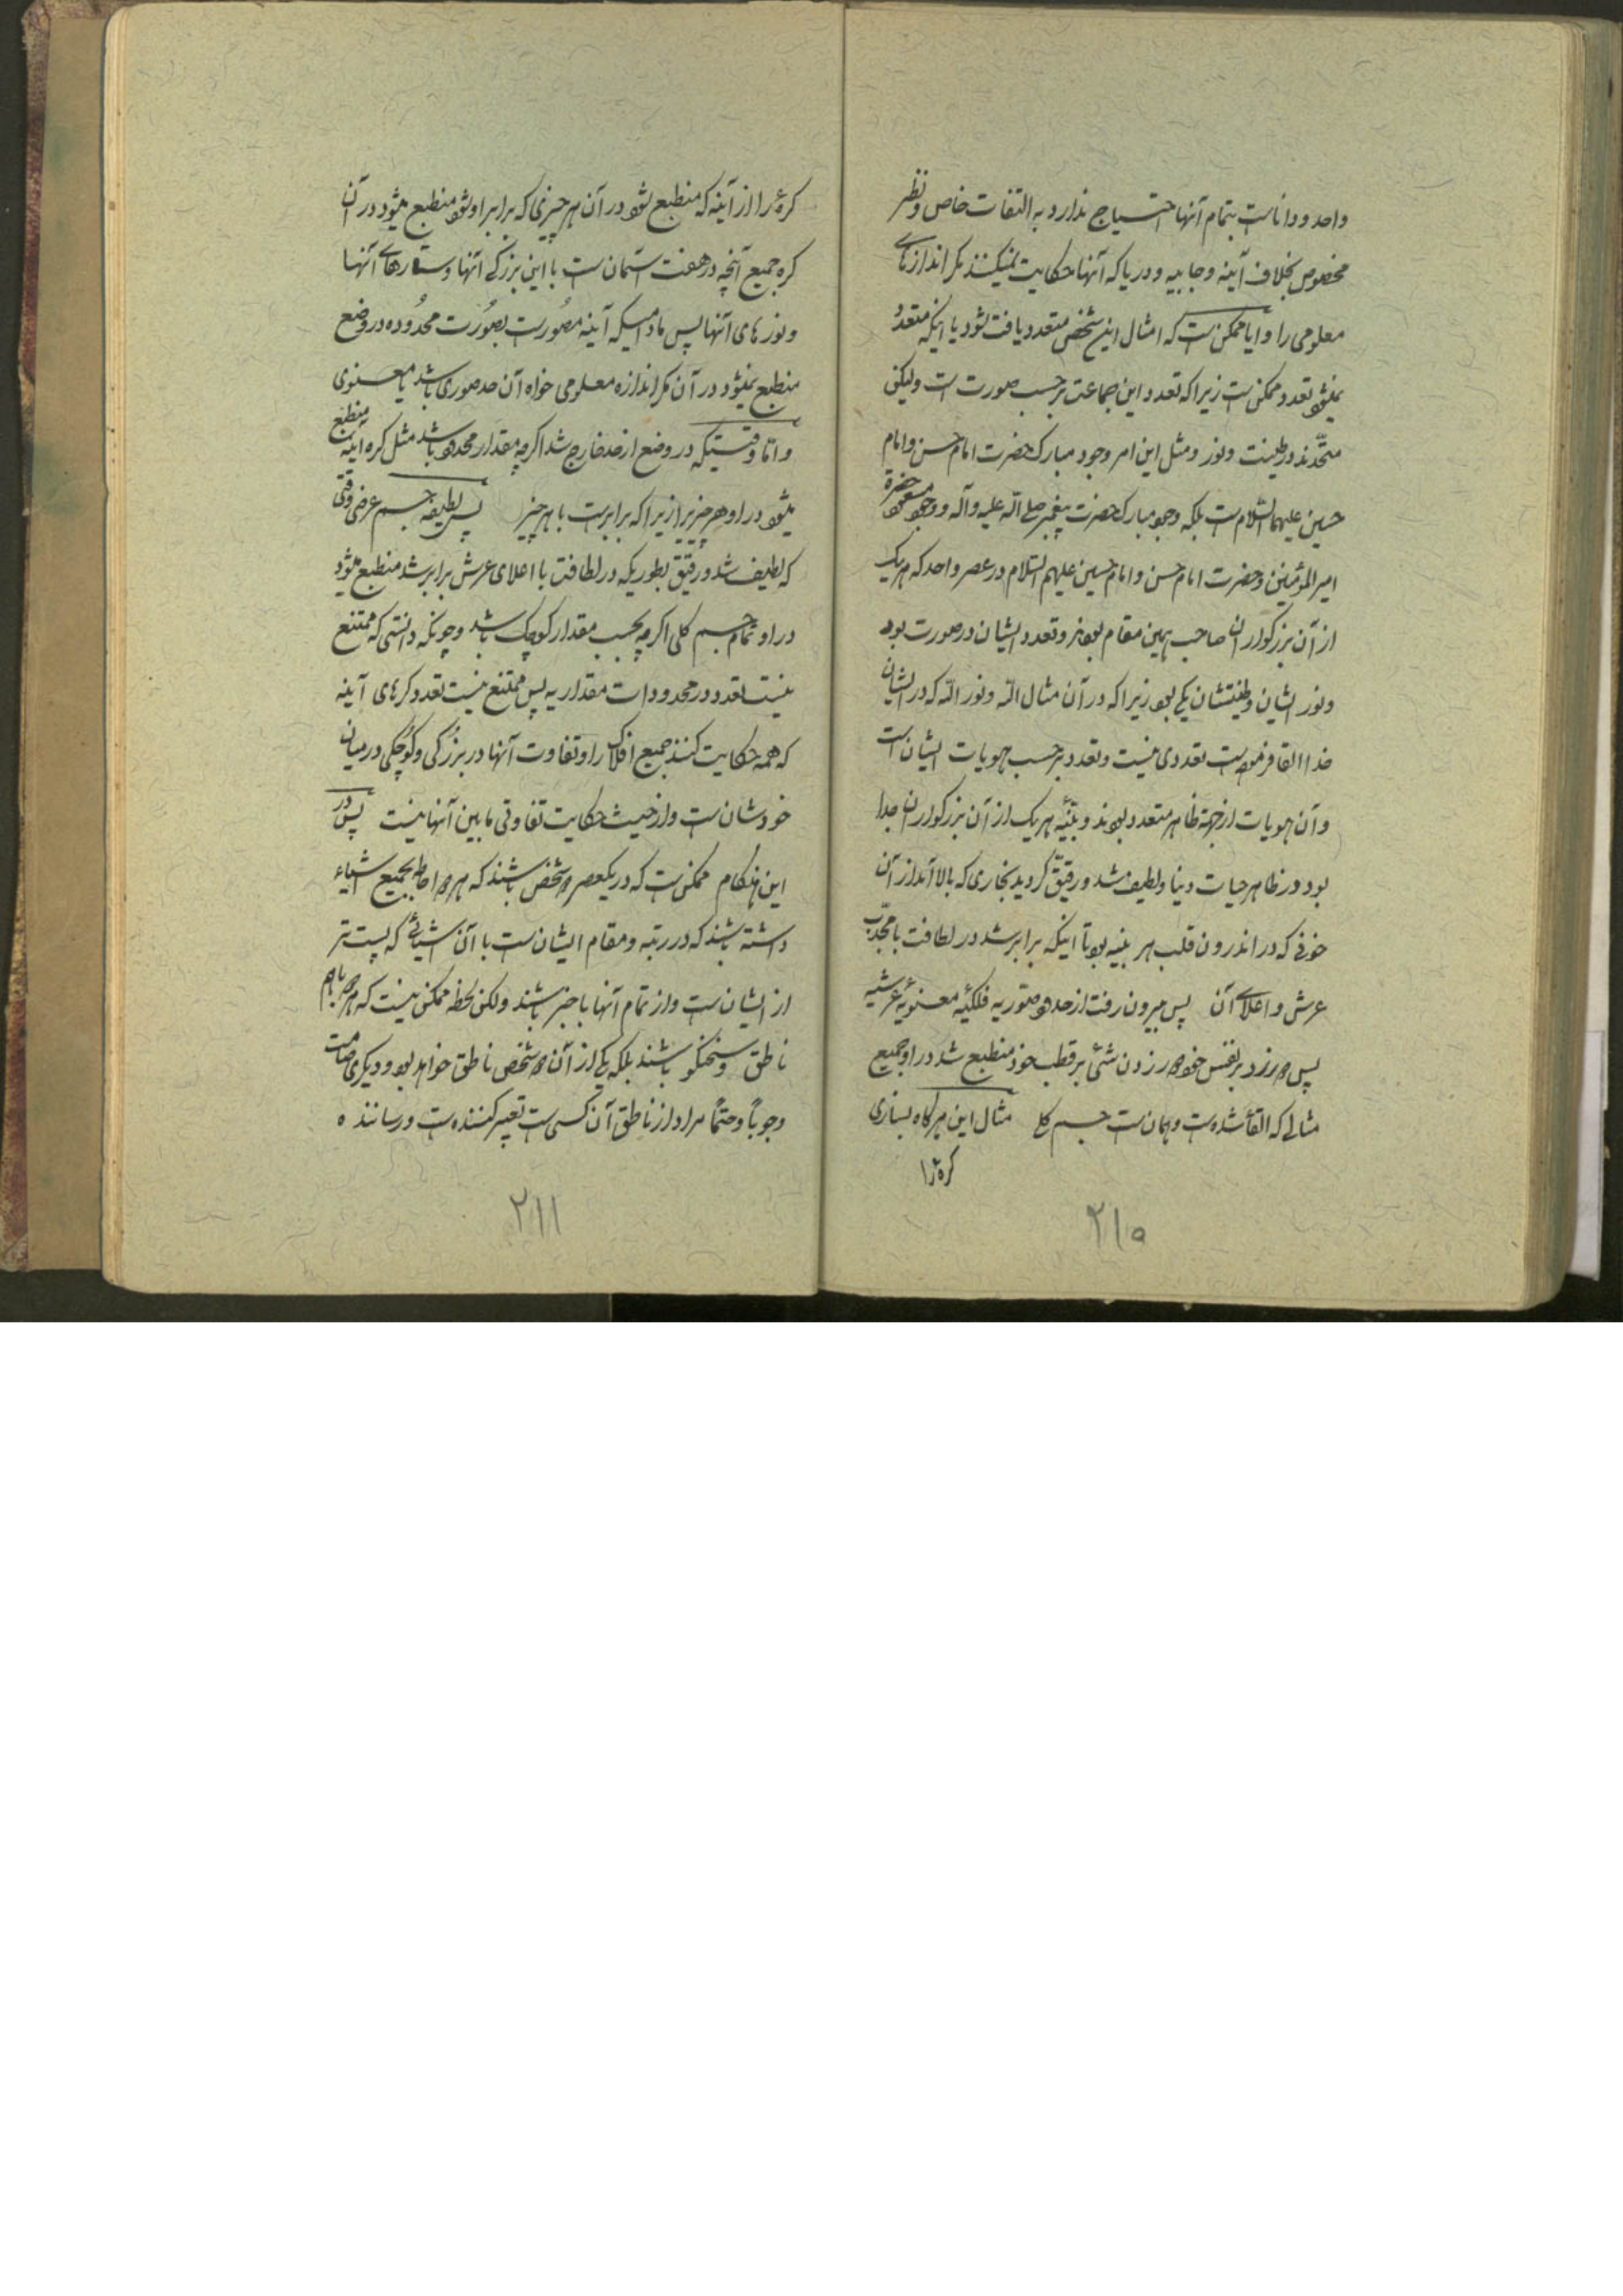 واحد و داناست بتمام آنها احتیاج ندارد به التفات خاص و نظر
مخصوص بخلاف آینه و جابیه و دریا که آنها حکایت نمیکنند مکر اندازهای
معلومی را و ایا ممکن است که امثال این شخص متعدد یافت شود یا اینکه متعدد
نمیشود تعدد ممکن است زیرا که تعدد این جماعت برحسب صورت است ولیکن
متحدند در طینت و نور و مثل این امر وجود مبارک حضرت امام حسن و امام
حسین علیهما السلام است بلکه وجود مبارک حضرت پیغمبر صلی الله علیه و آله و وجود مسعود حضرة
امیر المؤمنین و حضرت امام حسن و امام حسین علیهم السلام در عصر واحد که هر یک
از آن بزرکواران صاحب همین مقام بودند و تعدد ایشان در صورت بود
و نور ایشان و طینتشان یکی بود زیرا که در آن مثال الله و نور الله که در ایشان
خدا القا فرموده است تعددی نیست و تعدد برحسب هویات ایشان است
و آن هویات از جهة ظاهر متعدد بودند و بنیه هر یک از آن بزرکواران جدا
بود در ظاهر حیات دنیا و لطیف شد و رقیق کردید بخاری که بالا آمد از آن
خونی که در اندرون قلب هر بنیه بود تا اینکه برابر شد در لطافت با محدب
عرش و اعلای آن پس بیرون رفت از حدود صوریه فلکیه معنویه عرشیه
پس دور زد بر نفس خود دور زدن شئ بر قطب خود منطبع شد در او جمیع
مثالی که القا شده است و همان است جسم کلی مثال این هرکاه بسازی
کره را
۲۱۰
کره را از آینه که منطبع شود در آن هر چیزی که برابر او شود منطبع میشود در آن
کره جمیع آنچه در هفت آسمان است با این بزرکی آنها و ستارهای آنها
و نورهای آنها پس مادامیکه آینه مصورست بصورت محدوده در وضع
منطبع نمیشود در آن مکر اندازه معلومی خواه آن حد صوری باشد یا معنوی
و اما وقتیکه در وضع از حد خارج شد اکرچه بمقدار محدود باشد مثل کره آینه منطبع
میشود در او هر چیز زیرا که برابرست با هر چیز پس لطیفه جسم عرضی وقتی
که لطیف شد و رقیق بطوریکه در لطافت با اعلای عرش برابر شد منطبع میشود
در او تمام جسم کلی اکرچه بحسب مقدار کوچک باشد و چونکه دانستی که ممتنع
نیست تعدد در محدودات مقداریه پس ممتنع نیست تعدد کرهای آینه
که همه حکایت کنند جمیع افلاک را و تفاوت آنها در بزرکی و کوچکی در میان
خودشان است و از حیث حکایت تفاوتی ما بین آنها نیست پس در
این هنکام ممکن است که در یکعصر دو شخص باشند که هر دو احاطه بجمیع اشیاء
داشته باشند که در رتبه و مقام ایشان است با آن اشیائی که پست تر
از ایشان است و از تمام آنها با خبر باشند ولکن لحظه ممکن نیست که هر دو با هم
ناطق و سخنکو باشند بلکه یکی از آن دو شخص ناطق خواهد بود و دیکری صامت
وجوباً و حتماً مراد از ناطق آن کسی است تعبیر کننده است و رساننده
۲۱۱